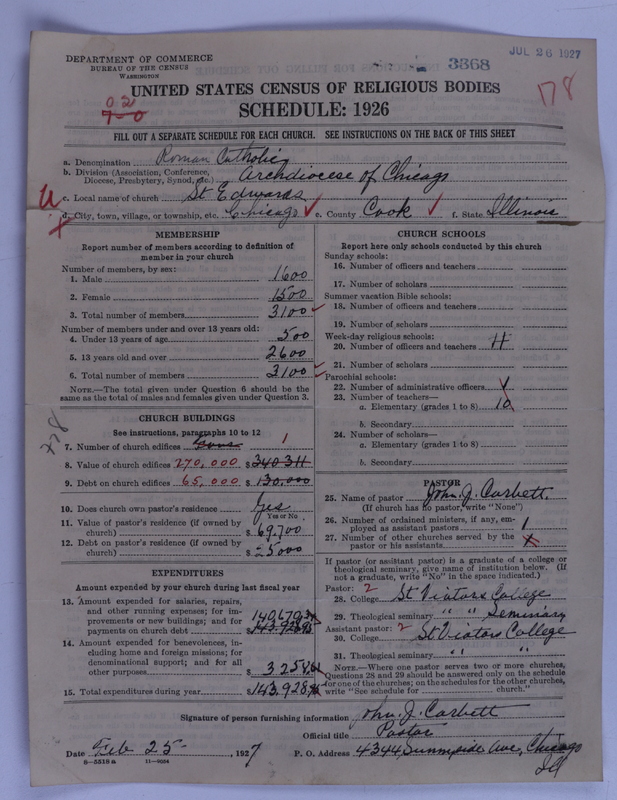 DEPARTMENT OF COMMERCE
BUREAU OF THE CENSUS
WASHINGTON
3368
JUL 26 1927
178
UNITED STATES CENSUS OF RELIGIOUS BODIES
SCHEDULE: 1926
02
7-0
FILL OUT A SEPARATE SCHEDULE FOR EACH CHURCH. SEE INSTRUCTIONS ON THE BACK OF THIS SHEET
a. Denomination Roman Catholic
b. Division (Association, Conference, Diocese, Presbytery, Synod, etc.) Archdiocese of Chicago
c. Local name of church St Edwards
d. City, town, village, or township, etc. Chicago e. County Cook f. State Illinois
MEMBERSHIP
Report number of members according to definition of
member in your church
Number of members, by sex:
1. Male 1600
2. Female 1500
3. Total number of members 3100
Number of members under and over 13 years old:
4. Under 13 years of age 500
5. 13 years old and over 2600
6. Total number of members 3100
NOTE.—The total given under Question 6 should be the
same as the total of males and females given under Question 3.
CHURCH BUILDINGS
See instructions, paragraphs 10 to 12
7. Number of church edifices 1
8. Value of church edifices 270,000 $ 340311
9. Debt on church edifices 65,000 $ 130,000
10. Does church own pastor's residence Yes
Yes or No
11. Value of pastor's residence (if owned by
church) $ 69,700
12. Debt on pastor's residence (if owned by
church) $ 25000
EXPENDITURES
Amount expended by church during last fiscal year
13. Amount expended for salaries, repairs,
and other running expenses; for im-
provements or new buildings; and for
payments on church debt $ 140,670
14. Amount expended for benevolences, in-
cluding home and foreign missions; for
denominational support; and for all
other purposes $ 3258
15. Total expenditures during year $ 143,928
CHURCH SCHOOLS
Report here only schools conducted by this church
Sunday schools:
16. Number of officers and teachers
17. Number of scholars
Summer vacation Bible schools:
18. Number of officers and teachers
19. Number of scholars
Week-day religious schools:
20. Number of officers and teachers 11
21. Number of scholars
Parochial schools:
22. Number of administrative officers
23. Number of teachers—
a. Elementary (grades 1 to 8) 10
b. Secondary
24. Number of scholars—
a. Elementary (grades 1 to 8)
b. Secondary
PASTOR
25. Name of pastor John J. Carbett
(If church has no pastor, write "None")
26. Number of ordained ministers, if any, em-
ployed as assistant pastors 1
27. Number of other churches served by the
pastor or his assistants
If pastor (or assistant pastor) is a graduate of a college or
theological seminary, give name of institution below. (If
not a graduate, write "No" in the space indicated.)
Pastor: 2
28. College St Viators College
29. Theological seminary " " Seminary
Assistant pastor: 2
30. College St Viators College
31. Theological seminary " "
NOTE.—Where one pastor serves two or more churches,
Questions 28 and 29 should be answered only on the schedule
for one of the churches; on the schedules for the other churches,
write "See schedule for ______ church."
Signature of person furnishing information John J. Carbett
Official title Pastor
Date Feb 25 1927 P. O. Address 4344 Sunnyside Ave, Chicago
Ill
8—5518a 11—9064